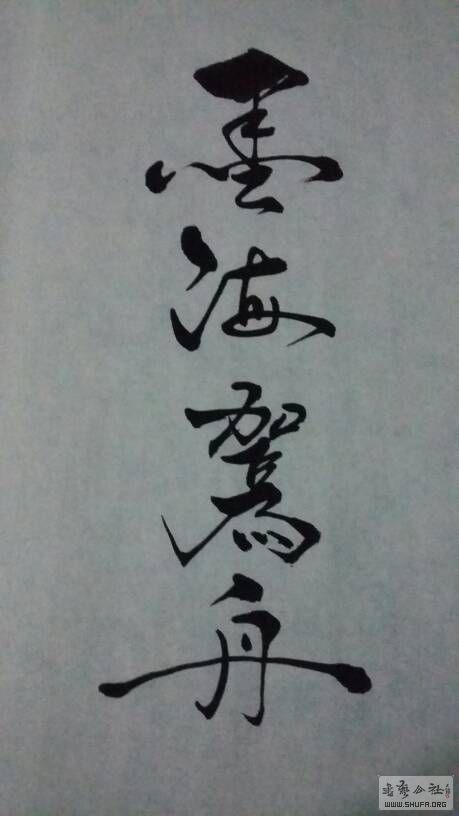 墨海駕舟
书艺公社
WWW.SHUFA.ORG